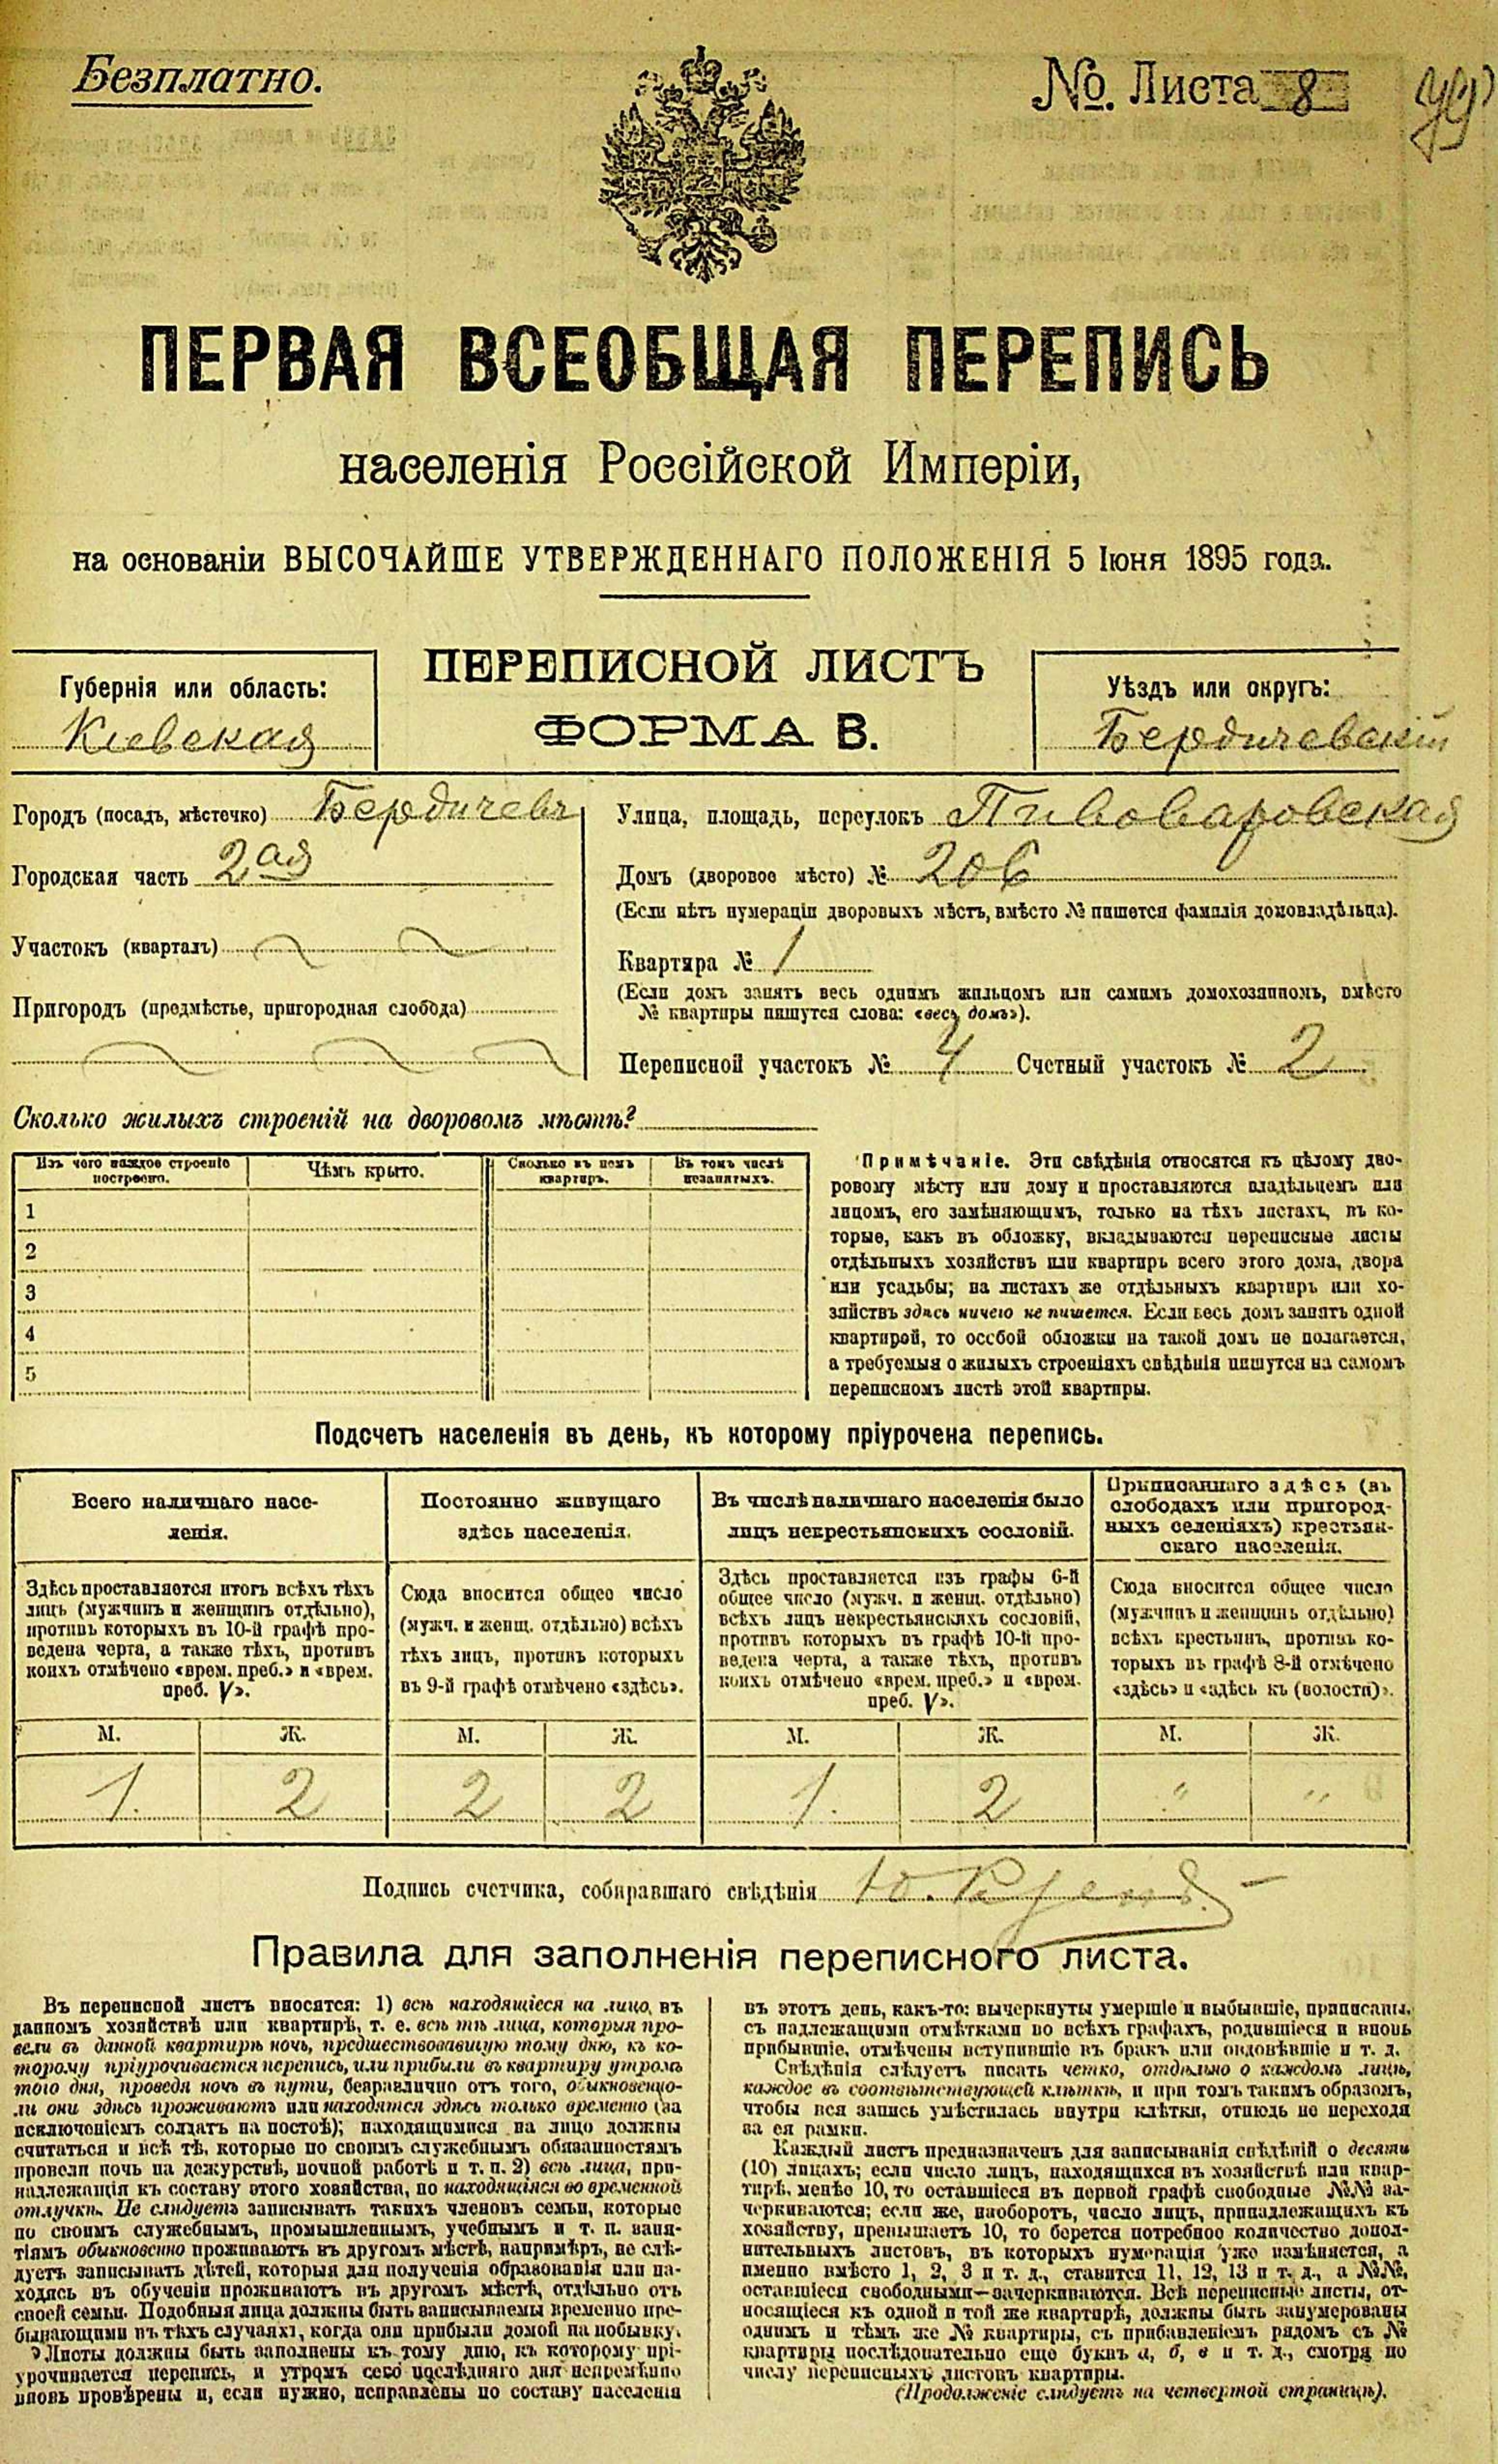 Безплатно.
№. Листа 8
ПЕРВАЯ ВСЕОБЩАЯ ПЕРЕПИСЬ
населенія Россійской Имперіи,
на основаніи ВЫСОЧАЙШЕ УТВЕРЖДЕННАГО ПОЛОЖЕНІЯ 5 Іюня 1895 года.
ПЕРЕПИСНОЙ ЛИСТЪ
ФОРМА В.
Губернія или область:
Кіевская
Уѣздъ или округъ:
Бердичевскій
Городъ (посадъ, мѣстечко) Бердичевъ
Городская часть 2ая
Участокъ (кварталъ)
Пригородъ (предмѣстье, пригородная слобода)
Улица, площадь, переулокъ Пивоваровская
Домъ (дворовое мѣсто) № 206
(Если нѣтъ нумераціи дворовыхъ мѣстъ, вмѣсто № пишется фамилія домовладѣльца).
Квартира № 1
(Если домъ занятъ весь однимъ жильцомъ или самимъ домохозяиномъ, вмѣсто
№ квартиры пишутся слова: «весь домъ»).
Переписной участокъ № 4 Счетный участокъ № 2
Сколько жилыхъ строеній на дворовомъ мѣстѣ?
Изъ чего каждое строеніе построено.
Чѣмъ крыто.
Сколько въ немъ квартиръ.
Въ томъ числѣ незанятыхъ.
1
2
3
4
5
Примѣчаніе. Эти свѣдѣнія относятся къ цѣлому дво-
ровому мѣсту или дому и проставляются владѣльцемъ или
лицомъ, его замѣняющимъ, только на тѣхъ листахъ, въ ко-
торые, какъ въ обложку, вкладываются переписные листы
отдѣльныхъ хозяйствъ или квартиръ всего этого дома, двора
или усадьбы; на листахъ же отдѣльныхъ квартиръ или хо-
зяйствъ здѣсь ничего не пишется. Если весь домъ занятъ одной
квартирой, то особой обложки на такой домъ не полагается,
а требуемыя о жилыхъ строеніяхъ свѣдѣнія пишутся на самомъ
переписномъ листѣ этой квартиры.
Подсчетъ населенія въ день, къ которому пріурочена перепись.
Всего наличнаго насе-
ленія.
Здѣсь проставляется итогъ всѣхъ тѣхъ
лицъ (мужчинъ и женщинъ отдѣльно),
противъ которыхъ въ 10-й графѣ про-
ведена черта, а также тѣхъ, противъ
коихъ отмѣчено «врем. преб.» и «врем.
преб. V».
Постоянно живущаго
здѣсь населенія.
Сюда вносится общее число
(мужч. и женщ. отдѣльно) всѣхъ
тѣхъ лицъ, противъ которыхъ
въ 9-й графѣ отмѣчено «здѣсь».
Въ числѣ наличнаго населенія было
лицъ некрестьянскихъ сословій.
Здѣсь проставляется изъ графы 6-й
общее число (мужч. и женщ. отдѣльно)
всѣхъ лицъ некрестьянскихъ сословій,
противъ которыхъ въ графѣ 10-й про-
ведена черта, а также тѣхъ, противъ
коихъ отмѣчено «врем. преб.» и «врем.
преб. V».
Приписаннаго здѣсь (въ
слободахъ или пригород-
ныхъ селеніяхъ) крестьян-
скаго населенія.
Сюда вносится общее число
(мужчинъ и женщинъ отдѣльно)
всѣхъ крестьянъ, противъ ко-
торыхъ въ графѣ 8-й отмѣчено
«здѣсь» и «здѣсь къ (волости)».
М. Ж. М. Ж. М. Ж. М. Ж.
1. 2 2 2 1. 2 " "
Подпись счетчика, собиравшаго свѣдѣнія
Правила для заполненія переписного листа.
Въ переписной листъ вносятся: 1) всѣ находящіеся на лицо, въ
данномъ хозяйствѣ или квартирѣ, т. е. всѣ тѣ лица, которыя про-
вели въ данной квартирѣ ночь, предшествовавшую тому дню, къ ко-
торому пріурочивается перепись, или прибыли въ квартиру утромъ
того дня, проведя ночь въ пути, безразлично отъ того, обыкновенно-
ли они здѣсь проживаютъ или находятся здѣсь только временно (за
исключеніемъ солдатъ на постоѣ); находящимися на лицо должны
считаться и всѣ тѣ, которые по своимъ служебнымъ обязанностямъ
провели ночь на дежурствѣ, ночной работѣ и т. п. 2) всѣ лица, при-
надлежащія къ составу этого хозяйства, но находящіяся во временной
отлучкѣ. Не слѣдуетъ записывать такихъ членовъ семьи, которые
по своимъ служебнымъ, промышленнымъ, учебнымъ и т. п. заня-
тіямъ обыкновенно проживаютъ въ другомъ мѣстѣ, напримѣръ, не слѣ-
дуетъ записывать дѣтей, которыя для полученія образованія или на-
ходясь въ обученіи проживаютъ въ другомъ мѣстѣ, отдѣльно отъ
своей семьи. Подобныя лица должны быть записываемы временно пре-
бывающими въ тѣхъ случаяхъ, когда они прибыли домой на побывку.
Листы должны быть заполнены къ тому дню, къ которому прі-
урочивается перепись, и утромъ сего послѣдняго дня непремѣнно
вновь провѣрены и, если нужно, исправлены по составу населенія
въ этотъ день, какъ-то: вычеркнуты умершіе и выбывшіе, приписаны,
съ надлежащими отмѣтками во всѣхъ графахъ, родившіеся и вновь
прибывшіе, отмѣчены вступившіе въ бракъ или овдовѣвшіе и т. д.
Свѣдѣнія слѣдуетъ писать четко, отдѣльно о каждомъ лицѣ,
каждое въ соотвѣтствующей клѣткѣ, и при томъ такимъ образомъ,
чтобы вся запись умѣстилась внутри клѣтки, отнюдь не переходя
за ея рамки.
Каждый листъ предназначенъ для записыванія свѣдѣній о десяти
(10) лицахъ; если число лицъ, находящихся въ хозяйствѣ или квар-
тирѣ, менѣе 10, то оставшіеся въ первой графѣ свободные №№ за-
черкиваются; если же, наоборотъ, число лицъ, принадлежащихъ къ
хозяйству, превышаетъ 10, то берется потребное количество допол-
нительныхъ листовъ, въ которыхъ нумерація уже измѣняется, а
именно вмѣсто 1, 2, 3 и т. д., ставится 11, 12, 13 и т. д., а №№,
оставшіеся свободными—зачеркиваются. Всѣ переписные листы, от-
носящіеся къ одной и той же квартирѣ, должны быть занумерованы
однимъ и тѣмъ же № квартиры, съ прибавленіемъ рядомъ съ №
квартиры послѣдовательно еще буквъ а, б, в и т. д., смотря по
числу переписныхъ листовъ квартиры.
(Продолженіе слѣдуетъ на четвертой страницѣ).